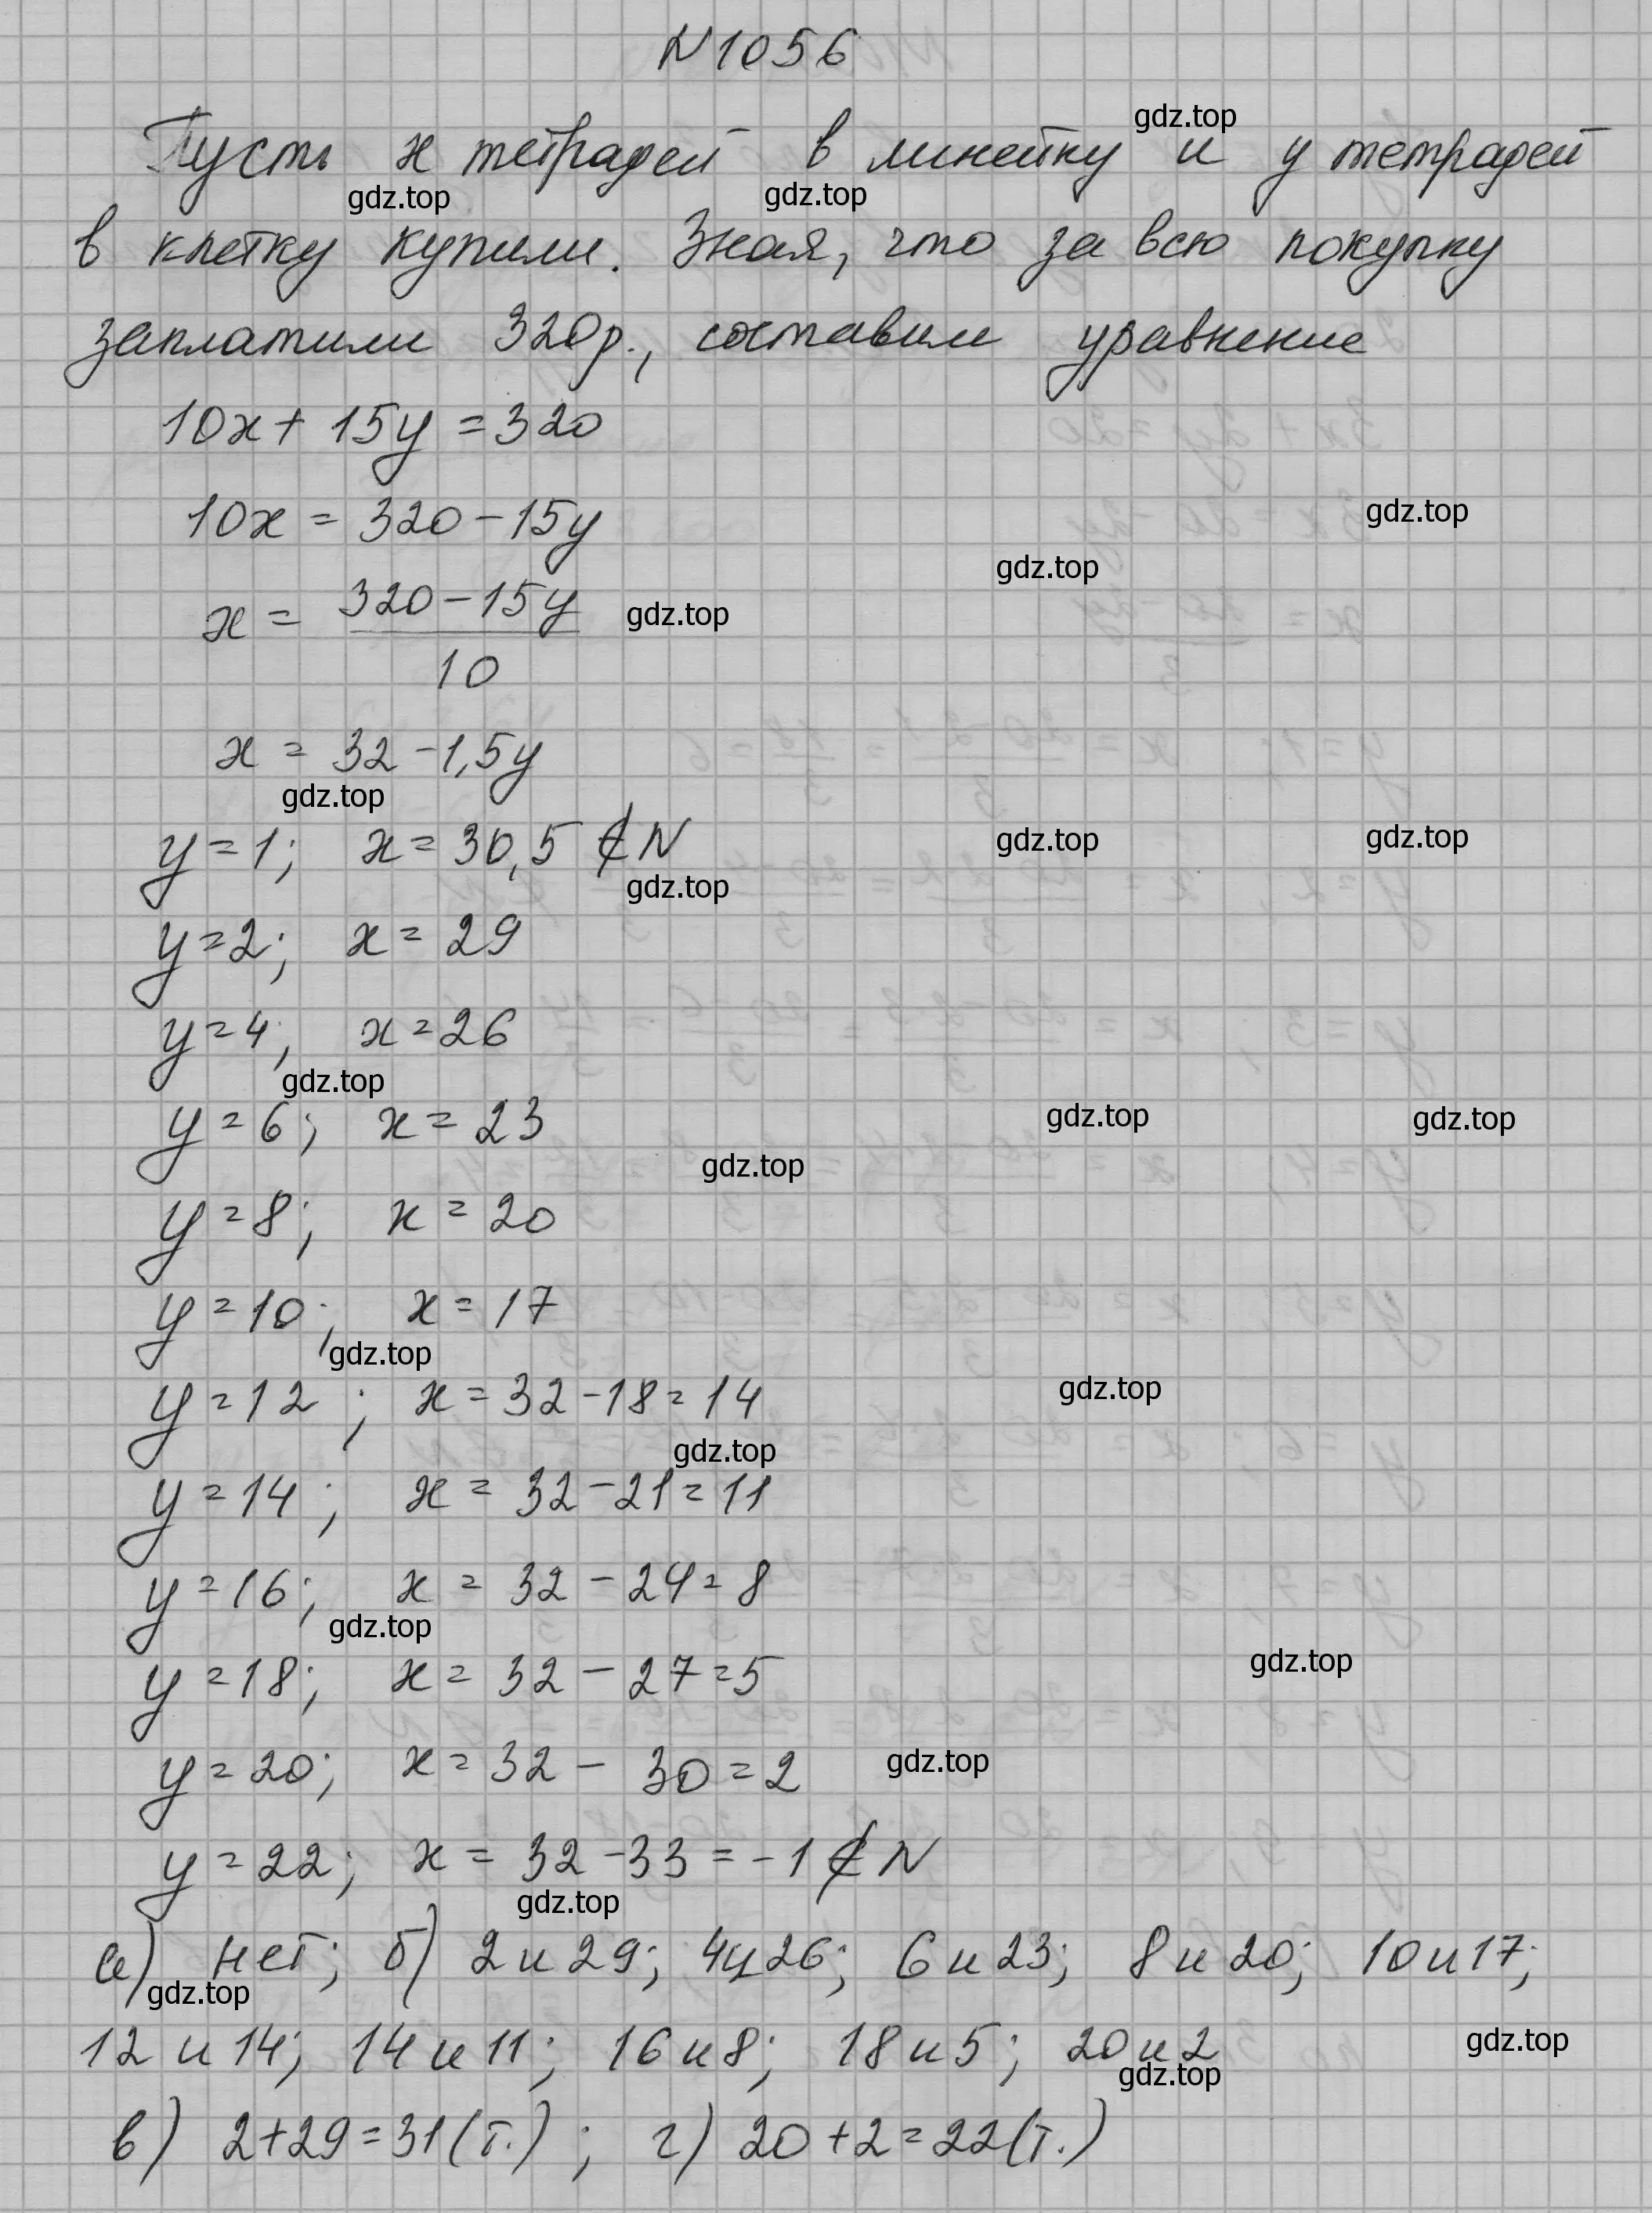 N1056
Пусть x тетрадей в линейку и y тетрадей
в клетку купили. Зная, что за всю покупку
заплатили 320р., составим уравнение
10x + 15y = 320
10x = 320 - 15y
x = (320 - 15y)/10
x = 32 - 1,5y
y = 1; x = 30,5 ∉ N
y = 2; x = 29
y = 4; x = 26
y = 6; x = 23
y = 8; x = 20
y = 10; x = 17
y = 12; x = 32 - 18 = 14
y = 14; x = 32 - 21 = 11
y = 16; x = 32 - 24 = 8
y = 18; x = 32 - 27 = 5
y = 20; x = 32 - 30 = 2
y = 22; x = 32 - 33 = -1 ∉ N
а) нет; б) 2 и 29; 4 и 26; 6 и 23; 8 и 20; 10 и 17;
12 и 14; 14 и 11; 16 и 8; 18 и 5; 20 и 2
в) 2 + 29 = 31 (т.); г) 20 + 2 = 22 (т.)